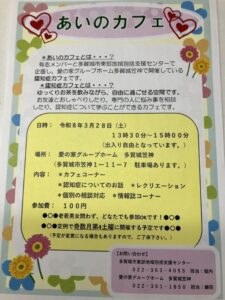 あいのカフェ
＊あいのカフェとは・・・？
有志メンバーと多賀城市東部地域包括支援センターで
企画し、愛の家グループホーム多賀城笠神で開催している
認知症カフェです。
＊認知症カフェとは・・・？
ゆっくりお茶を飲みながら、自由に過ごせる空間です。
お友達とおしゃべりしたり、専門の人に悩み事を相談
したり、認知症について学ぶことができるカフェです。
日時： 令和8年3月28日（土）
13時30分～15時00分
（出入り自由となっています。）
場所： 愛の家グループホーム 多賀城笠神
（多賀城市笠神1－11－7 駐車場あります。）
内容： ＊カフェコーナー
＊認知症についてのお話 ＊レクリエーション
＊個別の相談対応 ＊情報誌コーナー
参加費： 100円
●〇●老若男女問わず、どなたでも参加okです！●〇●
●〇●定例で奇数月第4土曜に開催する予定です●〇●
（予定が変更になる場合もありますので、ご了承下さい。）
【お問い合わせ】
多賀城市東部地域包括支援センター
愛の家グループホーム 多賀城笠神